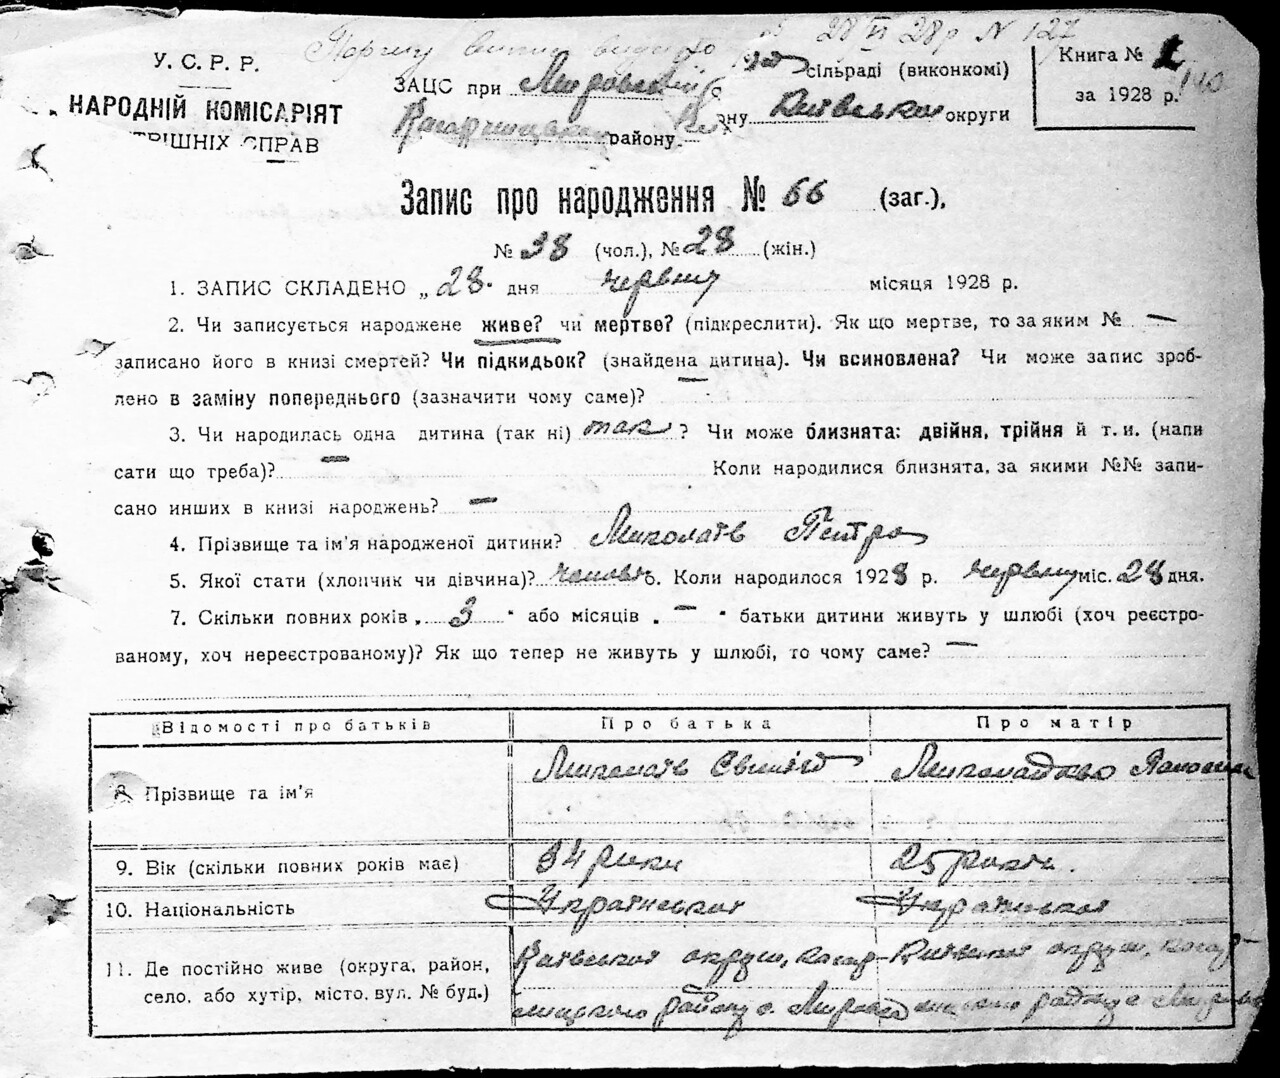 28 VI 28р N 127
У. С. Р. Р.
НАРОДНІЙ КОМІСАРІЯТ
ТРІШНІХ СПРАВ
ЗАЦС при Мировській сільраді (виконкомі)
району ону Київської округи
Книга № 1
140
за 1928 р.
Запис про народження № 66 (заг.),
№ 38 (чол.), № 28 (жін.)
1. ЗАПИС СКЛАДЕНО „28" дня червня місяця 1928 р.
2. Чи записується народжене живе? чи мертве? (підкреслити). Як що мертве, то за яким № —
записано його в книзі смертей? Чи підкидьок? (знайдена дитина). Чи всиновлена? Чи може запис зроб-
лено в заміну попереднього (зазначити чому саме)? —
3. Чи народилась одна дитина (так ні) так ? Чи може близнята: двійня, трійня й т. и. (напи
сати що треба)? — Коли народилися близнята, за якими №№ запи-
сано инших в книзі народжень? —
4. Прізвище та ім'я народженої дитини? Миколаїв Пётро
5. Якої стати (хлопчик чи дівчина)? чоловіч. Коли народилося 1928 р. червня міс. 28 дня.
7. Скільки повних років „ 3 " або місяців „ — " батьки дитини живуть у шлюбі (хоч реєстро-
ваному, хоч нереєстрованому)? Як що тепер не живуть у шлюбі, то чому саме? —
Відомості про батьків Про батька Про матір
8. Прізвище та ім'я Миколаїв
9. Вік (скільки повних років має) 34 роки 25 років.
10. Національність Української Української
11. Де постійно живе (округа, район, Київської округи, Кагар- Київської округи, Кагар
село, або хутір, місто, вул. № буд.) лицького району с. Мировка с. Мировка